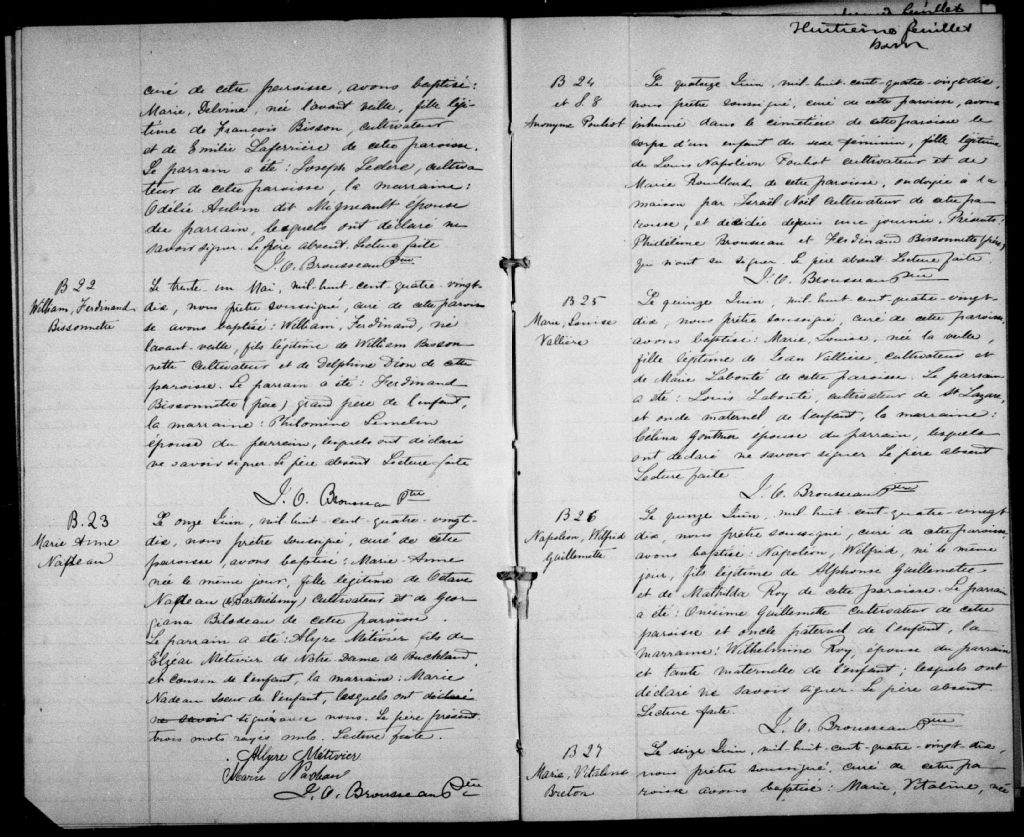 curé de cette paroisse, avons baptisé:
Marie, Delvina, née l'avant veille, fille légi-
time de François Bisson, cultivateur
et de Emilie Laferrière de cette paroisse.
Le parrain a été: Joseph Leclerc, cultiva-
teur de cette paroisse, la marraine:
Odélie Aubin dit Migneault épouse
du parrain, lesquels ont déclaré ne
savoir signer. Le père absent. Lecture faite
J. O. Brousseau Ptre
B 22
William, Ferdinand
Bissonnette
Le trente un Mai, mil-huit cent-quatre-vingt-
dix, nous prêtre soussigné, curé de cette parois-
se avons baptisé: William, Ferdinand, né
l'avant-veille, fils légitime de William Bisson
nette Cultivateur et de Delphine Dion de cette
paroisse. Le parrain a été: Ferdinand
Bissonnette (père) grand père de l'enfant,
la marraine: Philomène Lemelin
épouse du parrain, lesquels ont déclaré
ne savoir signer. Le père absent Lecture faite
J. O. Brousseau Ptre
B. 23
Marie Anne
Nadeau
Le onze Juin, mil huit-cent-quatre-vingt-
dix, nous prêtre soussigné, curé de cette
paroisse, avons baptisé: Marie-Anne
née le même jour, fille légitime de Octave
Nadeau (Barthélemy) Cultivateur et de Geor
giana Bilodeau de cette paroisse.
Le parrain a été: Alyre Métivier fils de
Elzéar Métivier de Notre Dame de Buckland,
et Cousin de l'enfant, la marraine: Marie
Nadeau Soeur de l'enfant, lesquels ont déclaré
ne savoir signer avec nous. Le père présent
trois mots rayés nuls. Lecture faite.
Alyre Métivier
Marie Nadeau
J. O. Brousseau Ptre
Huitième feuillet
B 24
et S. 8
Anonyme Pouliot
Le quatorze Juin, mil huit-cent-quatre-vingt-dix,
nous prêtre soussigné, curé de cette paroisse, avons
inhumé dans le cimetière de cette paroisse le
corps d'un enfant du sexe féminin, fille légitime
de Louis Napoléon Pouliot cultivateur et de
Marie Rouillard de cette paroisse, ondoyée à la
maison par Israël Noël Cultivateur de cette pa-
roisse, et décédée depuis une journée. Présents
Phidélime Brousseau et Ferdinand Bissonnette (père)
qui n'ont su signer. Le père absent Lecture faite.
J. O. Brousseau Ptre
B 25
Marie, Louise
Vallière
Le quinze Juin, mil huit-cent-quatre-vingt-
dix, nous prêtre soussigné, curé de cette paroisse,
avons baptisé: Marie, Louise, née la veille,
fille légitime de Jean Vallière, Cultivateur et
de Marie Labonté de cette paroisse. Le parrain
a été: Louis Labonté, cultivateur de St Lazare,
et oncle maternel de l'enfant, la marraine:
Célina Gonthier épouse du parrain, lesquels
ont déclaré ne savoir signer Le père absent
Lecture faite.
J. O. Brousseau Ptre
B 26
Napoléon, Wilfrid
Guillemette
Le quinze Juin, mil huit-cent-quatre-vingt
dix, nous prêtre soussigné, curé de cette paroisse,
avons baptisé: Napoléon, Wilfrid, né le même
jour, fils légitime de Alphonse Guillemette
et de Mathilda Roy de cette paroisse. Le parrain
a été: Onésime Guillemette Cultivateur de cette
paroisse et oncle paternel de l'enfant, la
marraine: Wilhelmine Roy, épouse du parrain
et tante maternelle de l'enfant; lesquels ont
déclaré ne savoir signer. Le père absent.
Lecture faite.
J. O. Brousseau Ptre
B 27
Marie, Vitaline
Breton
Le seize Juin, mil huit-cent-quatre-vingt-dix,
nous prêtre soussigné, curé de cette pa-
roisse avons baptisé: Marie, Vitaline, née